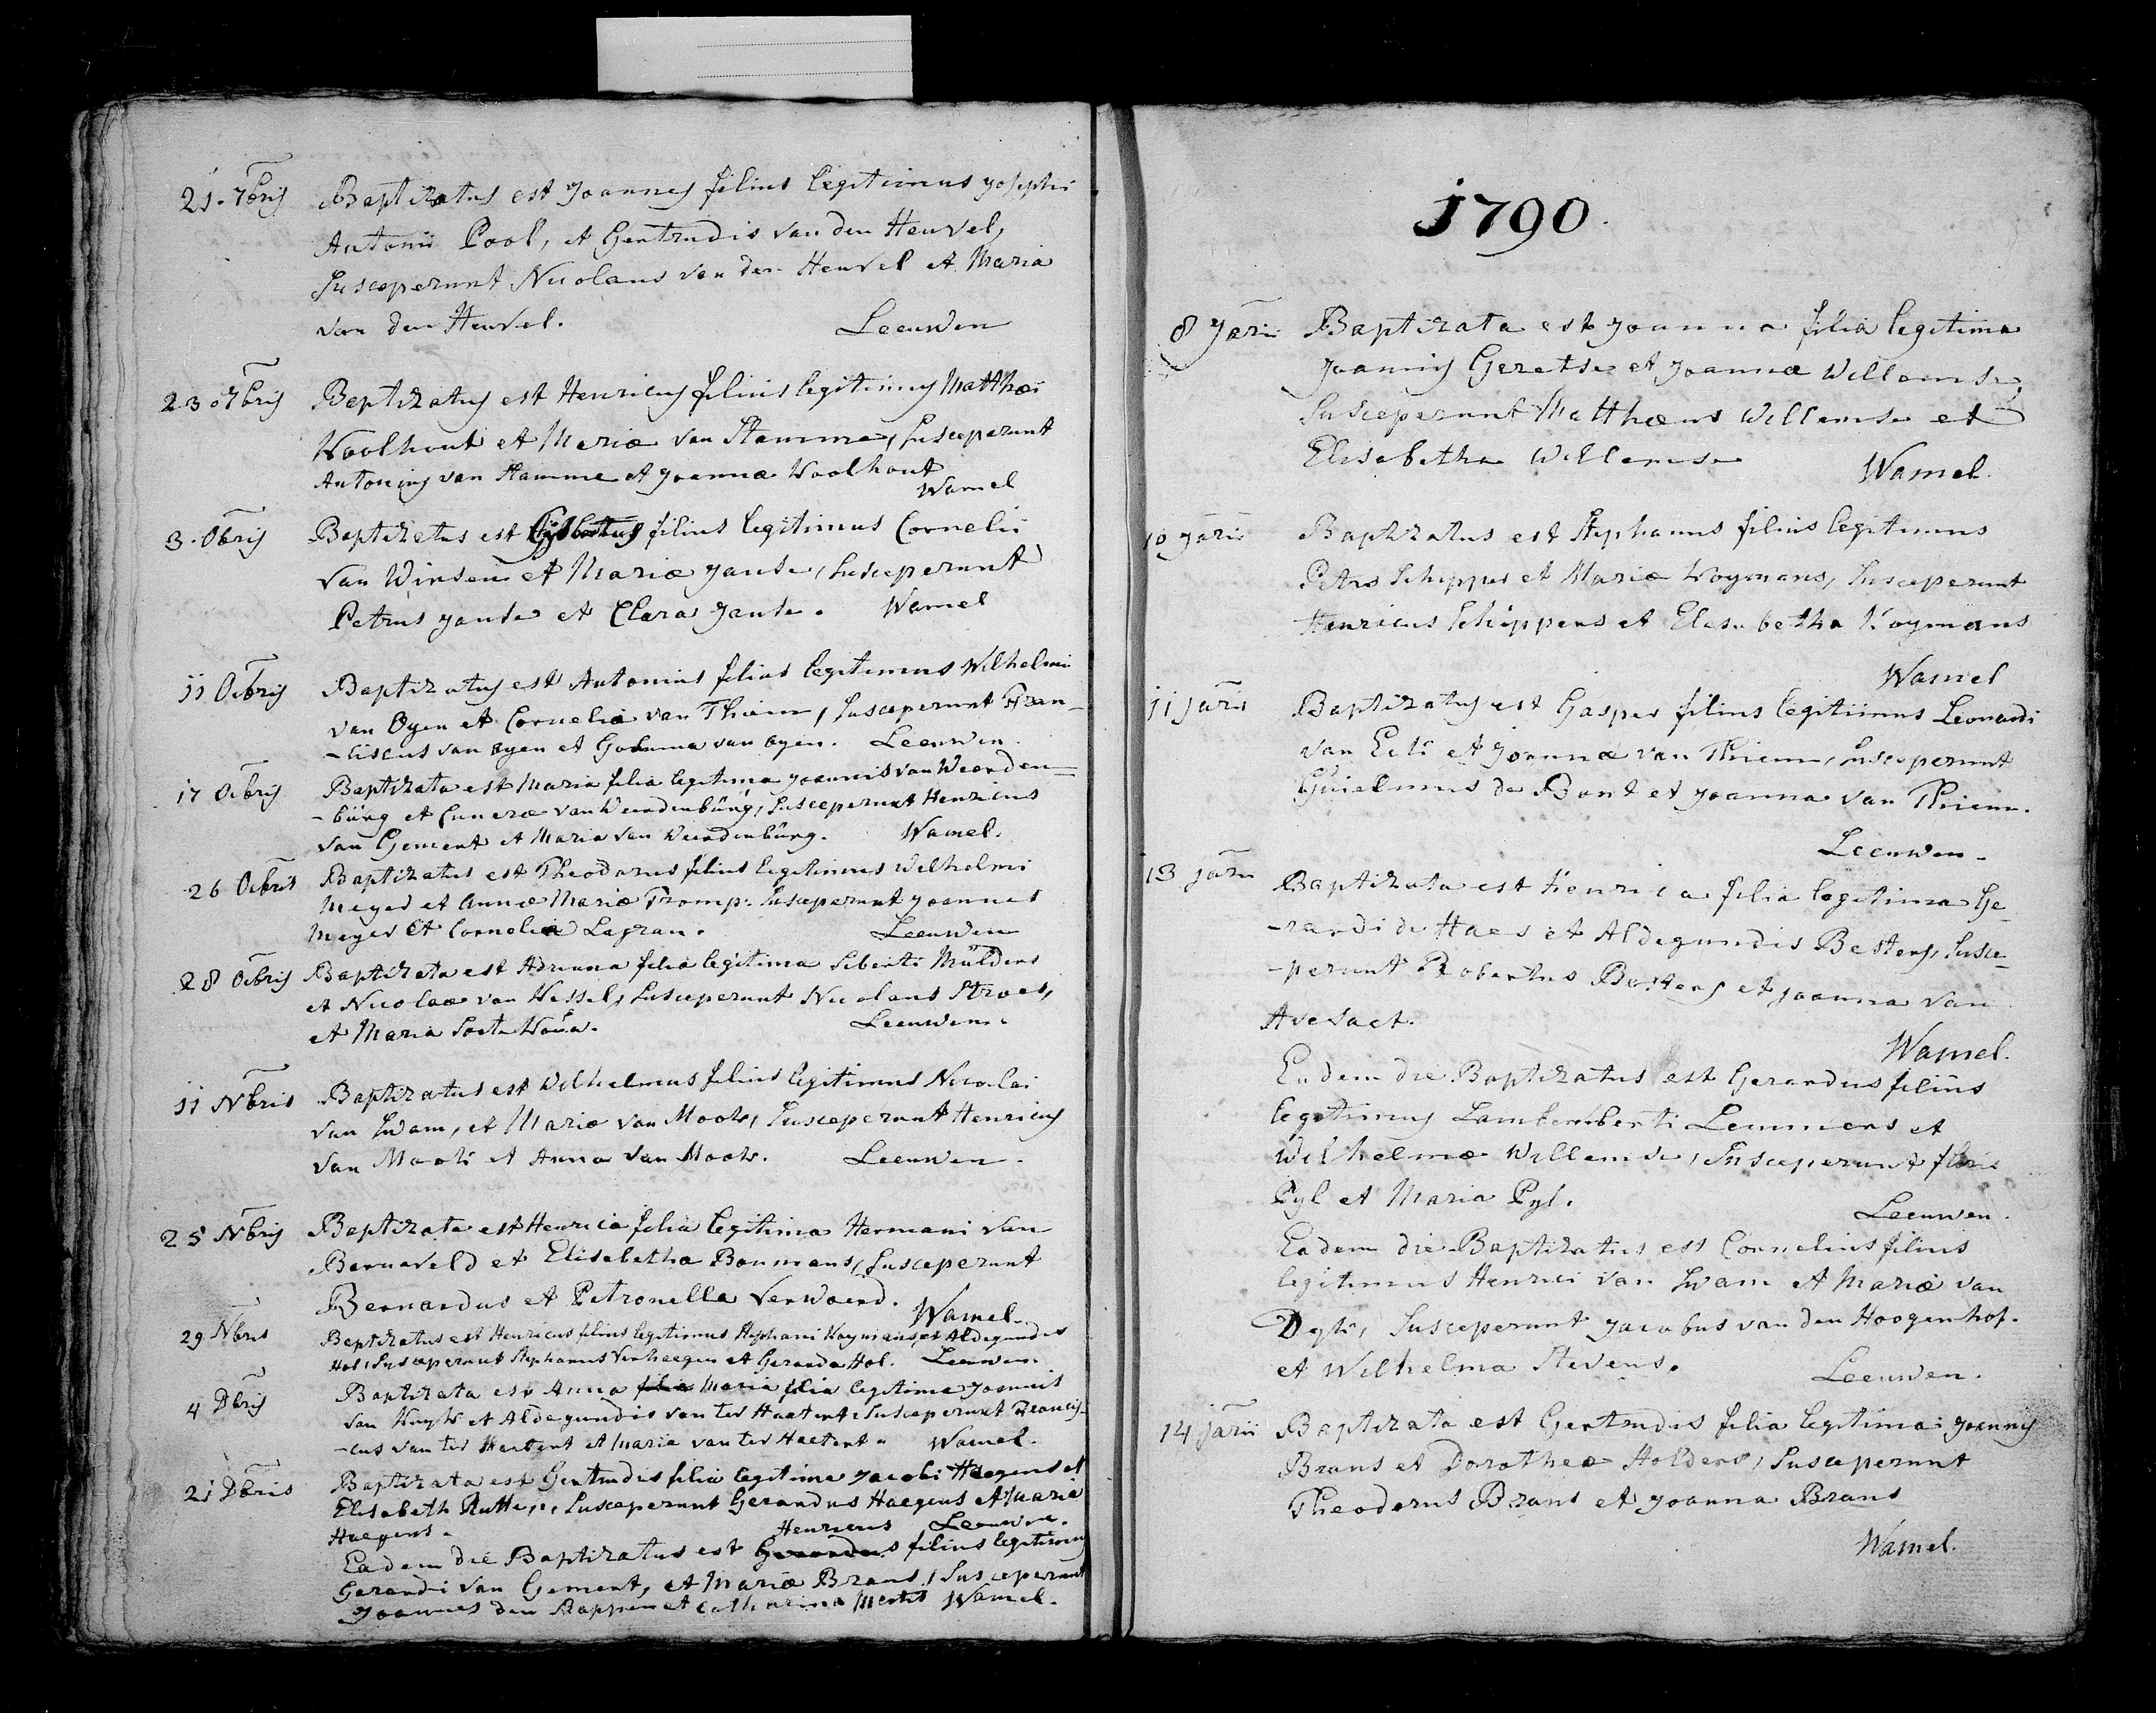 21. 7bris Baptizatus est Joannes filius legitimus Josephi
Antonii Pool, et Gertrudis van den Heuvel,
Susceperunt Nicolaus van den Heuvel et Maria
van den Heuvel. Leeuwen
23 7bris Baptizatus est Henricus filius legitimus Matthæi
Woolhout et Mariæ van Stamme, Susceperunt
Antonius van Stamme et Joanna Woolhout
Wamel
3. 8bris Baptizatus est Gijsbertus filius legitimus Cornelii
van Winsen et Mariæ Janse, Susceperunt
Petrus Janse et Clara Janse. Wamel
11 Octbris Baptizatus est Antonius filius legitimus Wilhelmi
van Oyen et Corneliæ van Thiem, Susceperunt Fran-
-ciscus van Oyen et van Oyen. Leeuwen
17 Octbris Baptizata est Maria filia legitima Joannis van Weerden-
-bürg et Cuneræ van Weerdenbürg, Susceperunt Henricus
van Gement et Maria van Weerdenbürg. Wamel.
26 Octbris Baptizatus est Theodorus filius legitimus Wilhelmi
Meyer et Annæ Mariæ Tromp. Susceperunt Joannes
Meyer et Cornelia Lagran. Leeuwen
28 Octbris Baptizata est Adriana filia legitima Seberti Mülders
et Nicolaæ van Hessel, Susceperunt Nicolaus Stroes,
et Maria Leeuwen.
11 Nbris Baptizatus est Wilhelmus filius legitimus Nicolai
van Swam, et Mariæ van Moots, Susceperunt Henricus
van Moots et Anna van Moots. Leeuwen.
25 Nbris Baptizata est Henrica filia legitima Hermani van
Barneveld et Elisabethæ Boumans, Susceperunt
Bernardus et Petronella Verwoerd. Wamel.
29 Nbris Baptizatus est Henricus filius legitimus Stephani Koymans, et Aldegundis
Hol, Susceperunt Stephanus Verhaegen et Geranda Hol. Leeuwen.
4 Dbris Baptizata est Anna filia Maria filia legitima Joannis
van Kuyk et Aldegundis van ter Haatert, Susceperunt Francis-
-cus van ter Haetert et Maria van ter Haetert. Wamel.
21 Dbris Baptizata est Gertrudis filia legitima Jacobi Haegens et
Elisabeth Rutten, Susceperunt Gerardus Haegens et Maria
Haegens. Henricus Leeuwen.
Eadem die Baptizatus est Gerardus filius legitimus
Gerardi van Gement, et Mariæ Brans, Susceperunt
Joannes den Stappen et Catharina Mertes Wamel.
1790.
8 Jarii Baptizata est Joanna filia legitima
Joannis Geretse et Joannæ Willemse,
Susceperunt Matthæus Willemse et
Elisabetha Willemse Wamel.
10 Jarii Baptizatus est Stephanus filius legitimus
Petri Schippers et Mariæ Koymans, Susceperunt
Henricus Schippers et Elisabetha Koymans
Wamel
11 Jarii Baptizatus est Gasper filius legitimus Leonardi
van Eck et Joannæ van Thiem, Susceperunt
Guielmus de Bont et Joanna van Thiem.
Leeuwen.
13 Jarii Baptizata est Henrica filia legitima Ge-
-rardi de Haes et Aldegundis Besters, Susce-
-perunt Robertus Besters et Joanna van
Avesaet.
Wamel.
Eadem die Baptizatus est Gerardus filius
legitimus Lambemberti Lemmers et
Wilhelmæ Willemse, Susceperunt floris
Pyl et Maria Pyl. Leeuwen.
Eadem die Baptizatus est Cornelius filius
legitimus Henrici van Swam et Mariæ van
Dyk, Susceperunt Jacobus van den Hoogenhof.
et Wilhelma Stevens. Leeuwen.
14 Jarii Baptizata est Gertrudis filia legitima Joannis
Brans et Dorotheæ Holders, Susceperunt
Theodorus Brans et Joanna Brans
Wamel.